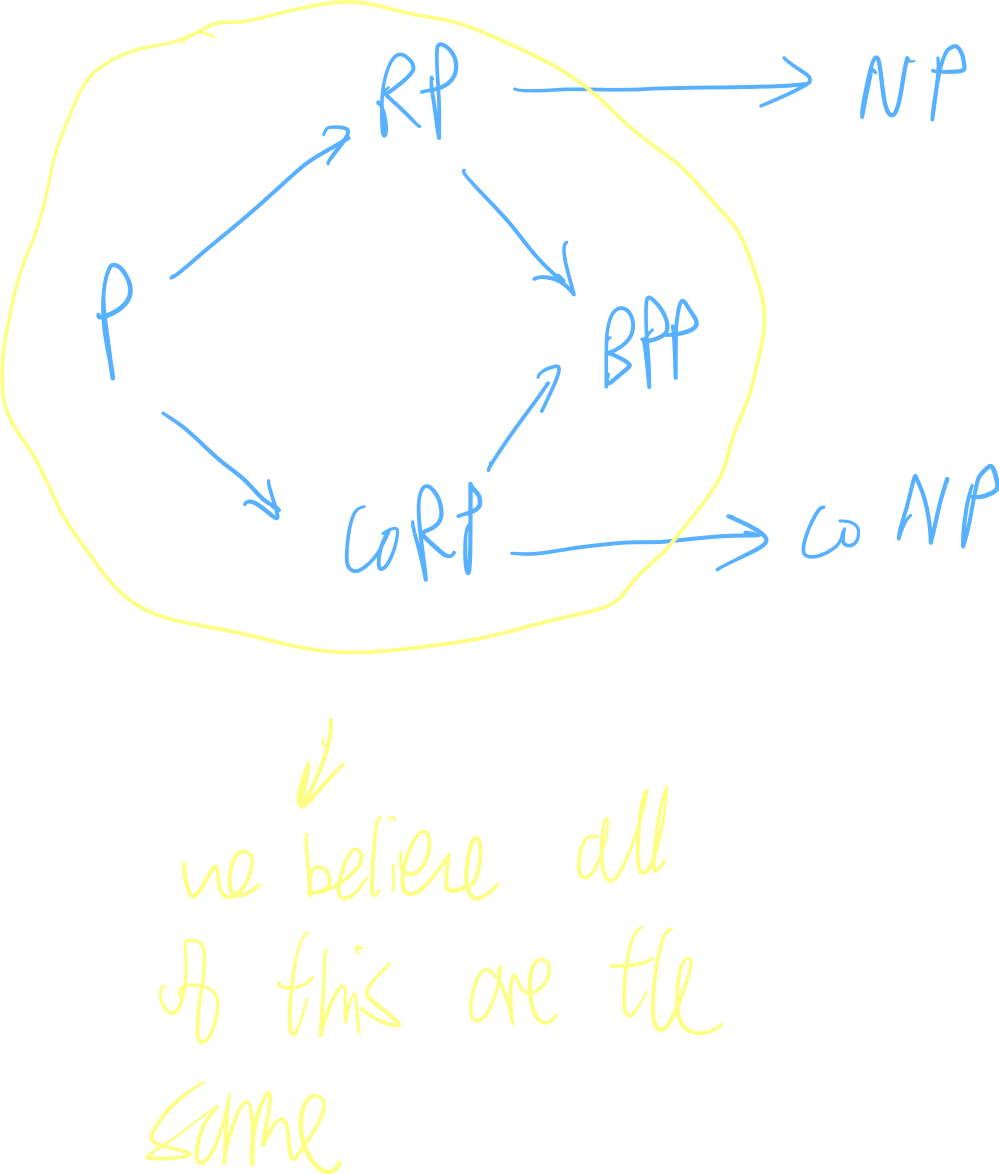 RP NP
P
BPP
CoRP co NP
we believe all
of this are the
same